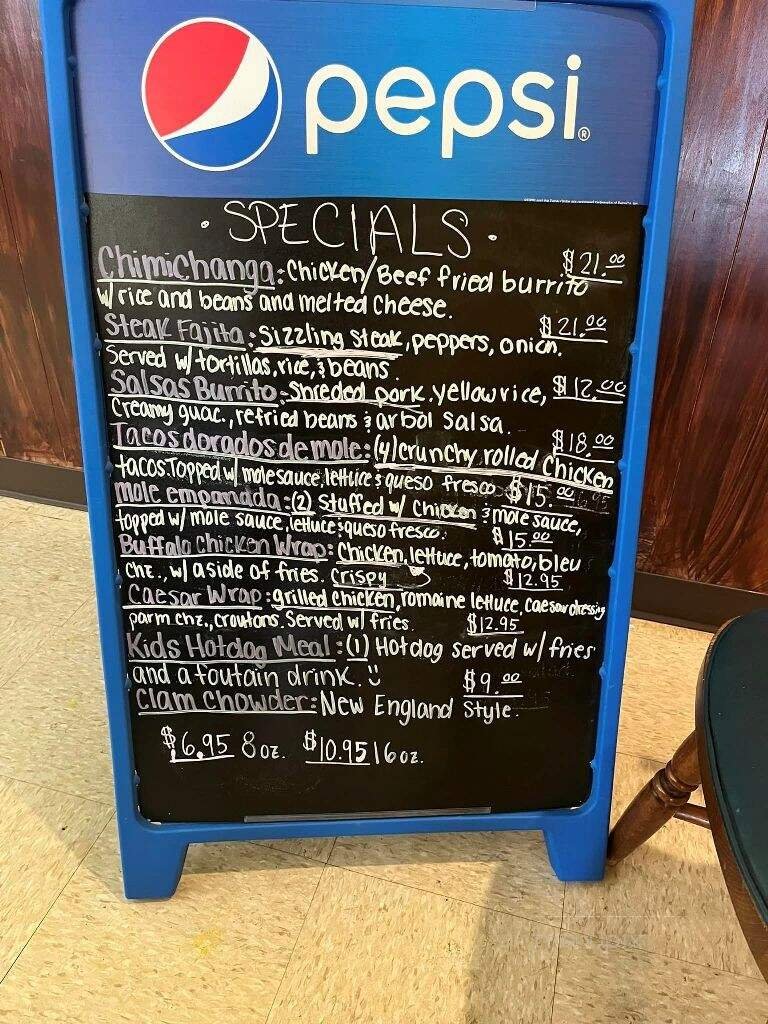 pepsi®
• SPECIALS •
Chimichanga: Chicken/Beef fried burrito $21.00
w/ rice and beans and melted cheese.
Steak Fajita: Sizzling steak, peppers, onion. $21.00
Served w/ tortillas, rice, & beans
Salsas Burrito: Shreded pork. yellow rice, $12.00
Creamy guac., refried beans & arbol salsa.
Tacos dorados de mole: (4) crunchy rolled chicken $18.00
tacos. Topped w/ mole sauce, lettuce & queso fresco $15.00
mole empanada: (2) Stuffed w/ chicken & mole sauce,
topped w/ mole sauce, lettuce & queso fresco. $15.00
Buffalo Chicken Wrap: Chicken, lettuce, tomato, bleu
chz., w/ a side of fries. crispy $12.95
Caesar Wrap: grilled chicken, romaine lettuce, caesar dressing
parm chz., croutons. Served w/ fries $12.95
Kids Hotdog Meal: (1) Hotdog served w/ fries
and a foutain drink. $9.00
Clam Chowder: New England Style.
$6.95 8oz. $10.95 16oz.